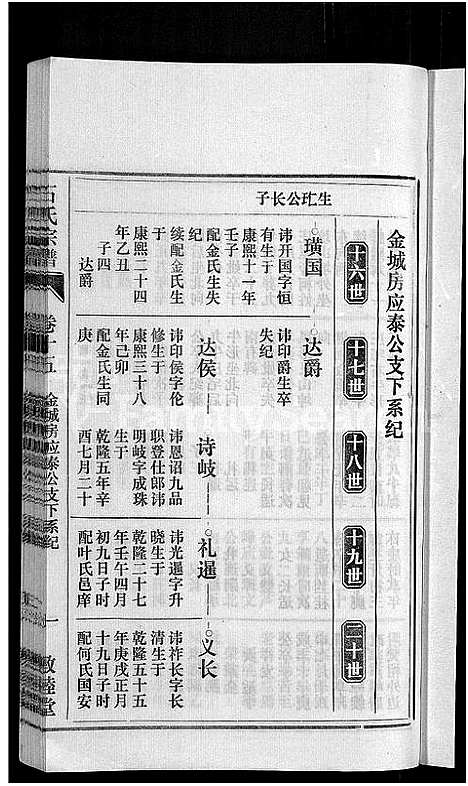 金城房应泰公支下系纪
十六世
十七世
十八世
十九世
二十世
生玒公长子
璜国
讳开国字恒
有生于
康熙十一年
壬子
配金氏生失
纪
续配金氏生
于
康熙二十四
年乙丑
子四
达爵
达爵
讳印爵生卒
失纪
达侯
讳印侯字伦
修生于
康熙三十八
年己卯
配金氏生同
庚
诗岐
讳恩诏九品
职登仕郎讳
明岐字成珠
生于
乾隆五年辛
酉七月二十
礼暹
讳光暹字升
晓生于
乾隆二十七
年壬午四月
初九日子时
配叶氏邑庠
义长
讳祥长字长
清生于
乾隆五十五
年庚戌正月
十九日子时
配何氏国安
石氏宗谱
卷十五
金城房应泰公支下系纪
一
敦睦堂